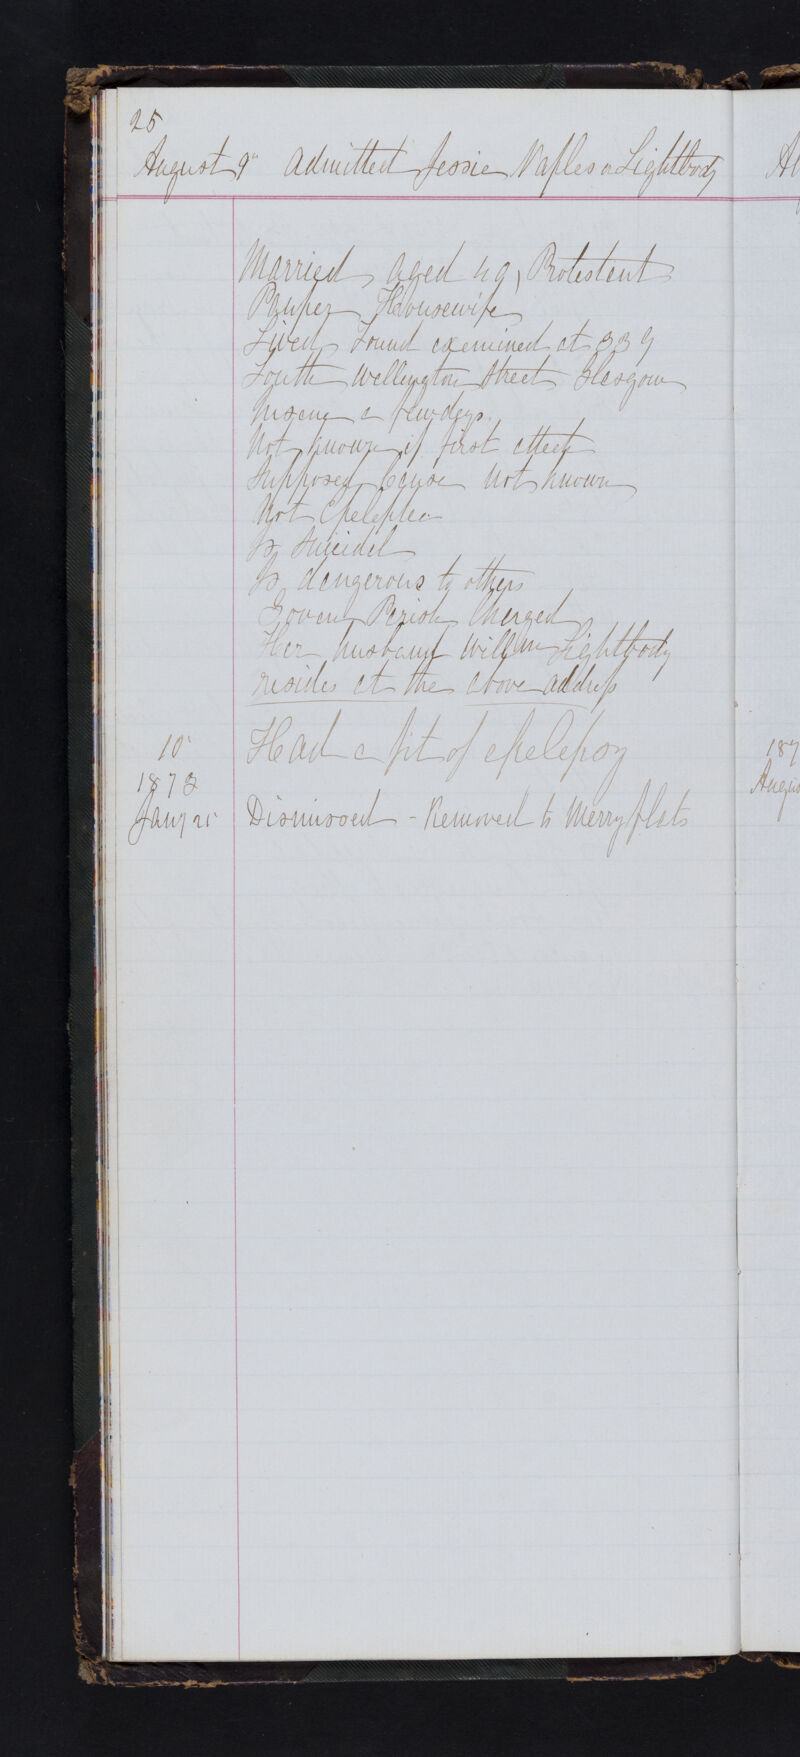 25
August 9th Admitted Jessie Naples or Lightbody
Married aged 49, Protestant
Pauper Housewife
Lived Found examined at 339
South Wellington Street Glasgow
Insane a few days.
Not known if first attack
Supposed Cause Not known
Not Epileptic
Is Suicidal
Is dangerous to others
Govan Parish Charged
Her husband Willm Lightbody
resides at the above address
10 Had a fit of epilepsy
1873
Jany 25 Dismissed - Removed to Merryflats
187
Augus